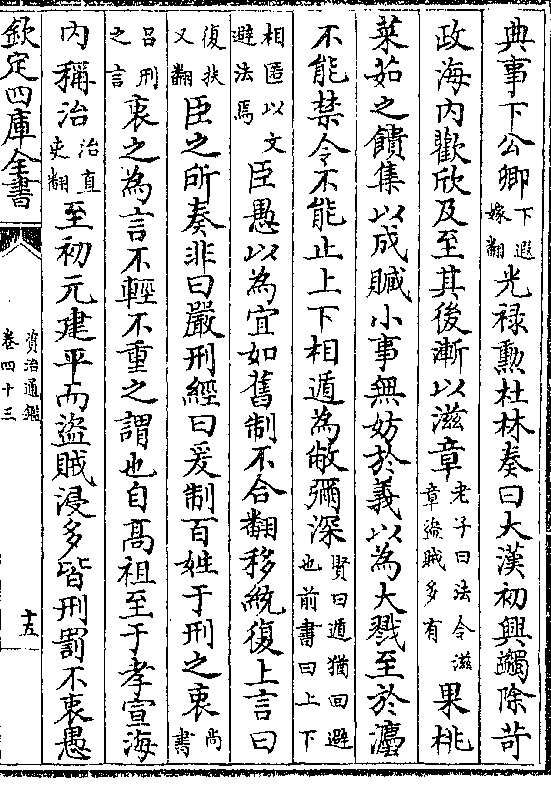 典事下公卿下遐嫁翻光禄勲杜林奏曰大漢初興蠲除苛
政海内歡欣及至其後漸以滋章老子曰法令滋章盗賊多有果桃
菜茹之饋集以成贓小事無妨於義以為大戮至於灋
不能禁令不能止上下相遁為敝彌深賢曰遁猶回避也前書曰上下
相匿以文避法焉臣愚以為宜如舊制不合翻移統復上言曰
復扶又翻臣之所奏非曰嚴刑經曰爰制百姓于刑之衷尚書
吕刑之言衷之為言不輕不重之謂也自髙祖至于孝宣海
内稱治治直吏翻至初元建平而盜賊浸多皆刑罰不衷愚
欽定四庫全書
資治通鑑
卷四十三
十五